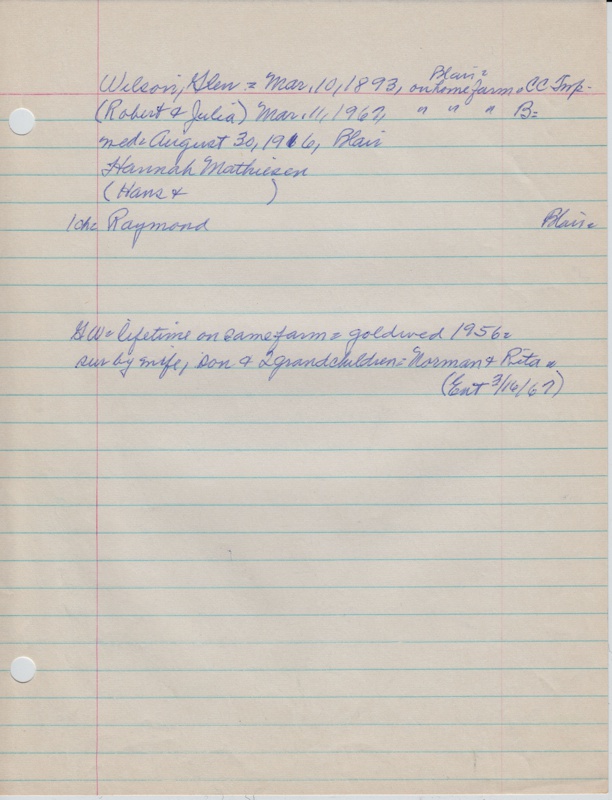 Blair =
Wilson, Glen = Mar. 10, 1893, on home farm = CC Twp.
(Robert & Julia) Mar. 11, 1967, " " " B =
md = August 30, 1916, Blair
Hannah Mathiesen
(Hans & )
1 ch = Raymond Blair =
GW = lifetime on same farm = gold wed 1956 =
sur by wife, son & 2 grandchildren = Norman & Rita =
(Ent 3/16/67)